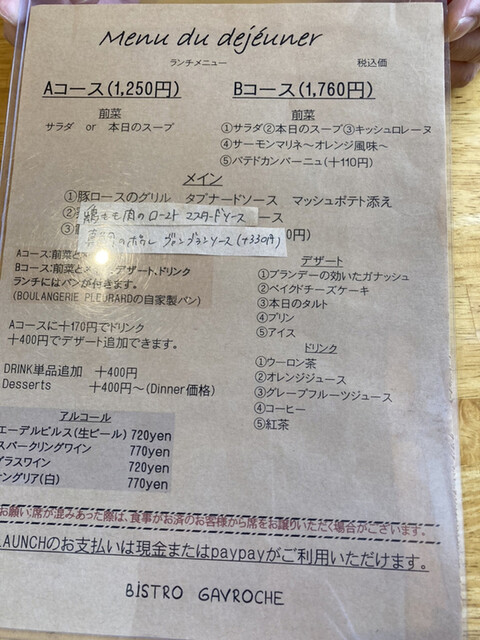 Menu du dejéuner
ランチメニュー 税込価
Aコース(1,250円) Bコース(1,760円)
前菜 前菜
サラダ or 本日のスープ ①サラダ②本日のスープ③キッシュロレーヌ
④サーモンマリネ～オレンジ風味～
⑤パテドカンパーニュ(+110円)
メイン
①豚ロースのグリル タプナードソース マッシュポテト添え
② 鶏モモ肉のロースト マスタードソース ース
③ のポワレ ヴァンブランソース (+330円) 0円)
Aコース:前菜と
Bコース:前菜と デザート、ドリンク
ランチにはパンが付きます。
(BOULANGERIE PLEURARDの自家製パン)
Aコースに+170円でドリンク
+400円でデザート追加できます。
DRINK単品追加 +400円
Desserts +400円～(Dinner価格)
デザート
①ブランデーの効いたガナッシュ
②ベイクドチーズケーキ
③本日のタルト
④プリン
⑤アイス
ドリンク
①ウーロン茶
②オレンジジュース
③グレープフルーツジュース
④コーヒー
⑤紅茶
アルコール
エーデルピルス(生ビール) 720yen
スパークリングワイン 770yen
グラスワイン 720yen
ングリア(白) 770yen
お願い:席が混みあった際は、食事がお済のお客様から席をお譲りいただく場合がございます。
LAUNCHのお支払いは現金またはpaypayがご利用いただけます。
BISTRO GAVROCHE